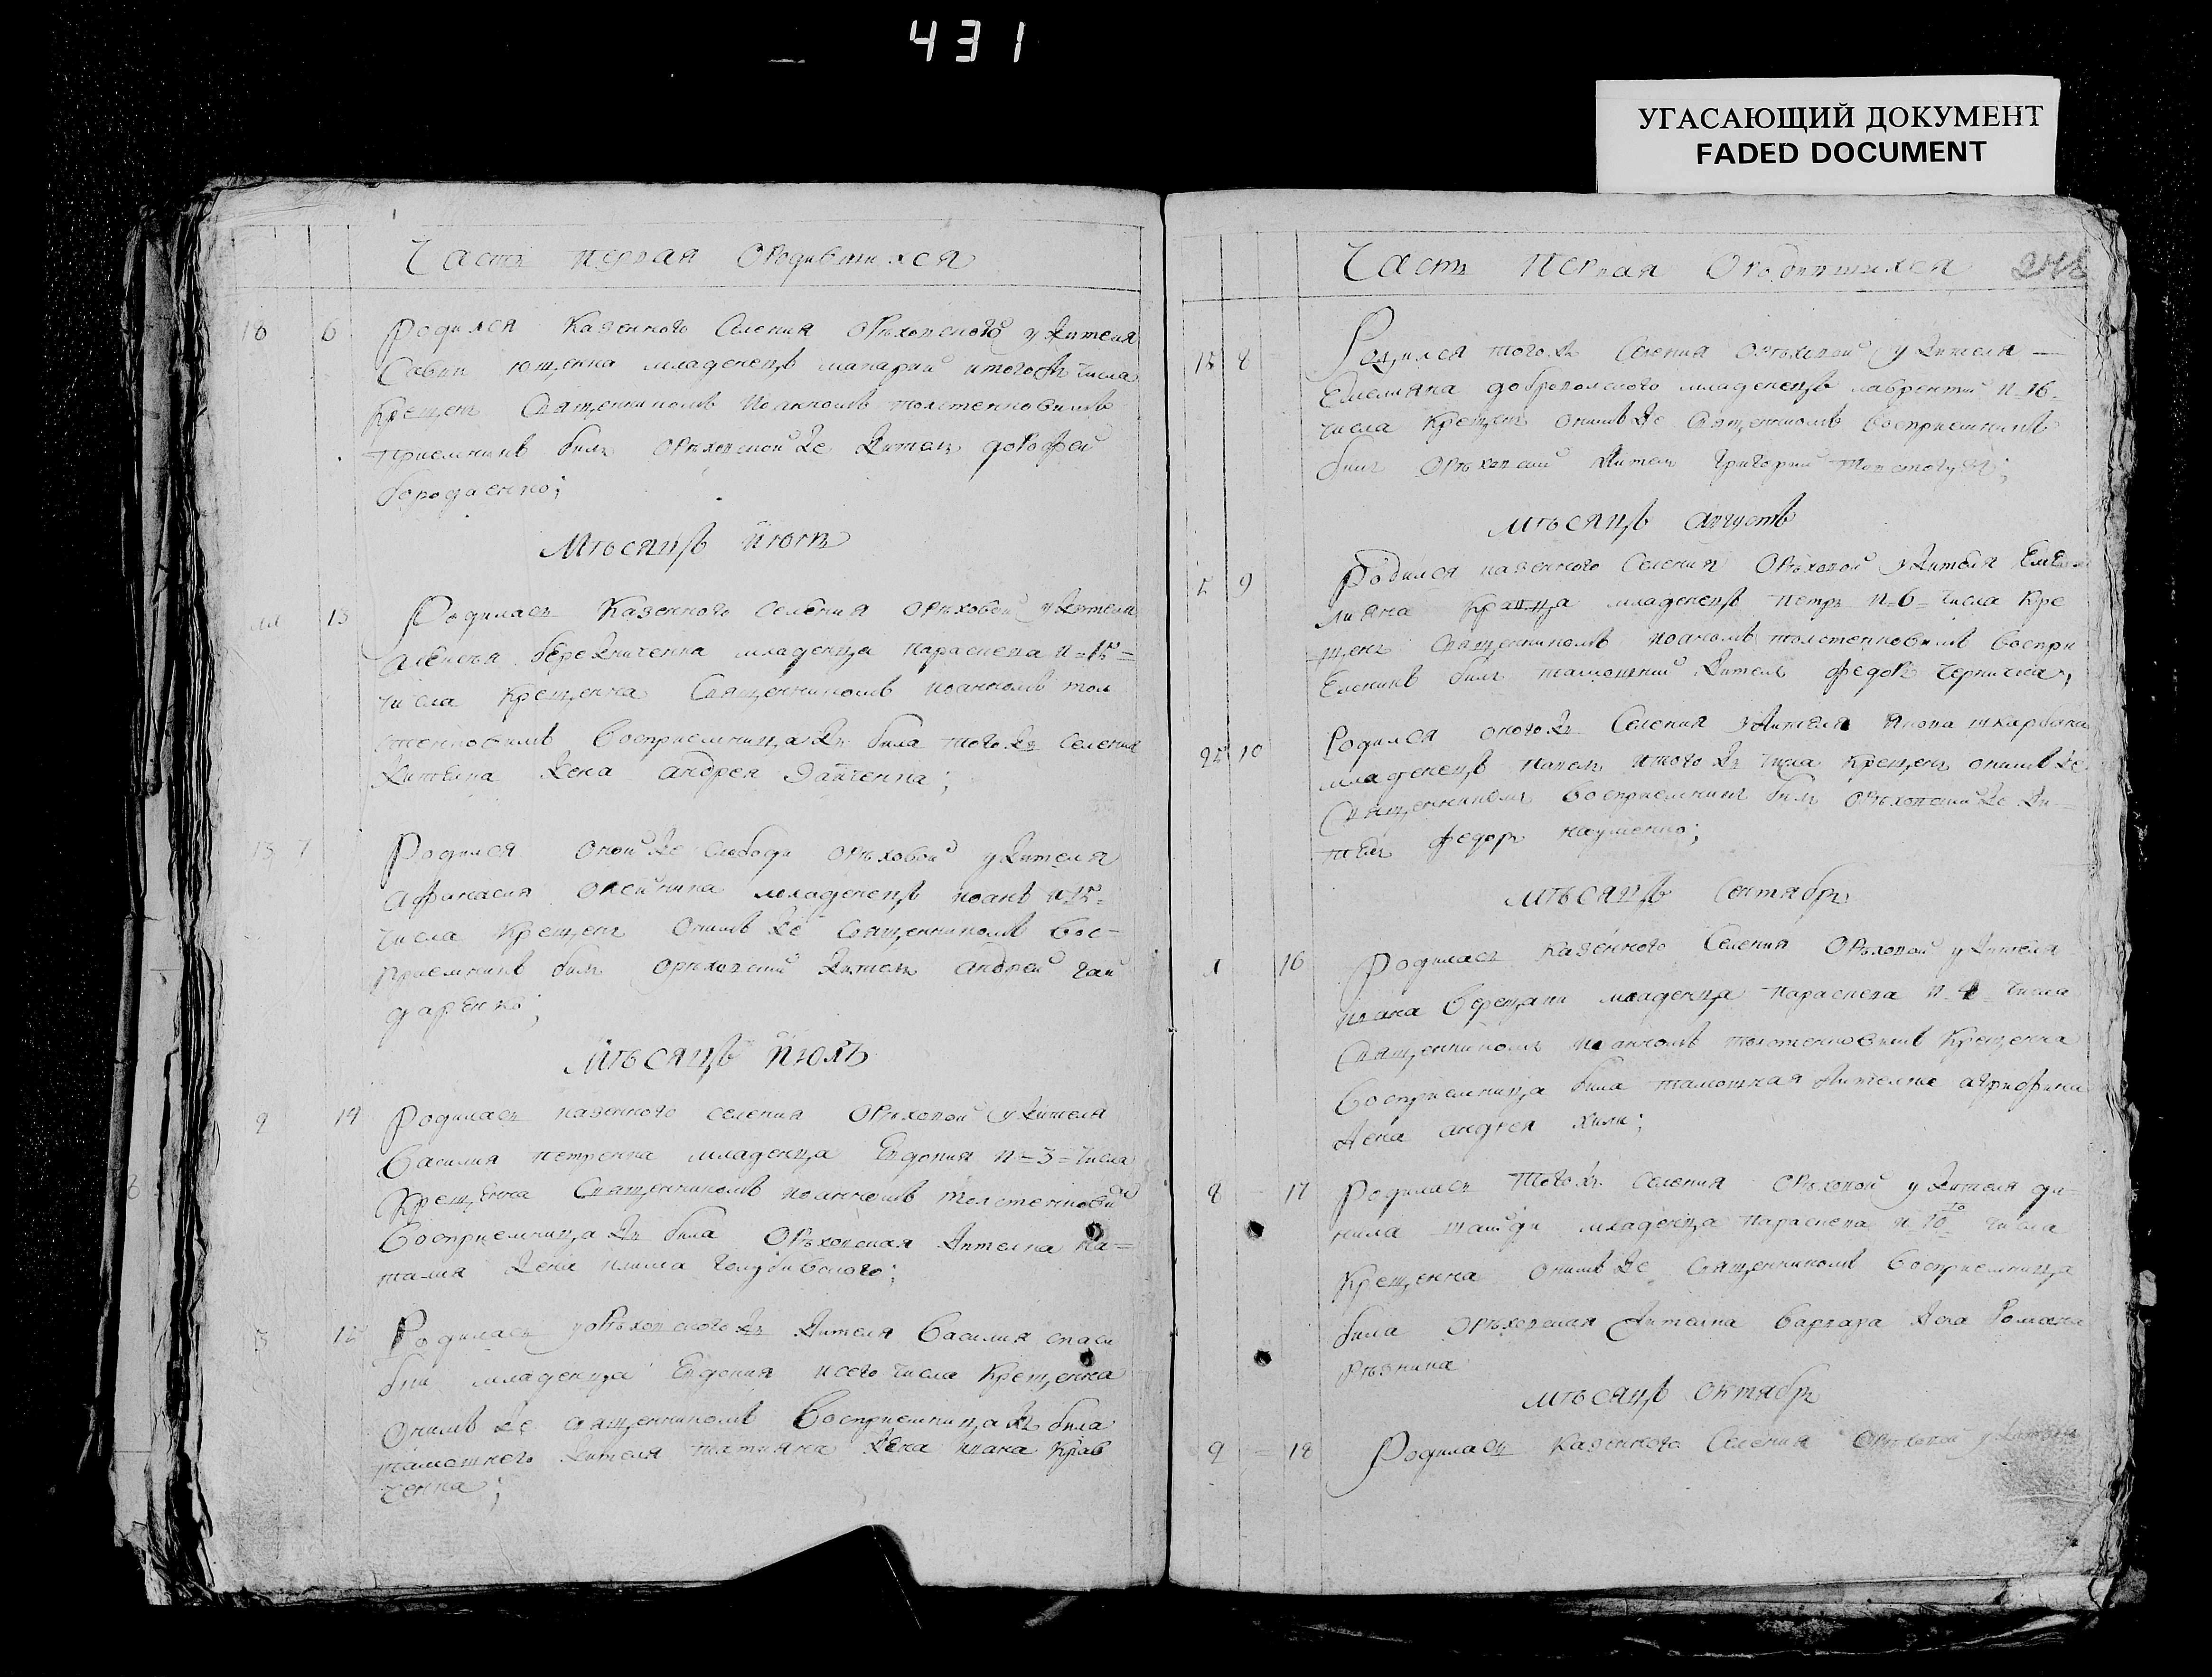 431
УГАСАЮЩИЙ ДОКУМЕНТ
FADED DOCUMENT
Часть первая О родившихся
16 6 Родился казенного селения Орѣховского у жителя
Савы Ющенка младенецъ макарий и того ж числа
крещенъ Священникомъ Иоанномъ Толстенковимъ
приемникъ билъ Орѣховской же житель дорофей
бородаенко;
Мѣсяцъ июнь
13 Родилась Казенного селения Орѣховой у жителя
алексѣя бережниченка младенца параскева и 15
числа крещенна Священникомъ Иоанномъ Тол
стенковимъ восприемница жъ била того жъ селения
жителка жена андрея Зайченка;
13 7 Родился оной же слободи Орѣховой у жителя
афанасия младенецъ иоанъ и 15
числа крещенъ онимъ же священникомъ вос-
приемникъ билъ орѣховский житель андрей гай
даренко;
Мѣсяцъ июль
2 14 Родилась казенного селения Орѣховой у жителя
Василия петренка младенца Евдокия и 3 числа
крещенна Священникомъ Иоанномъ Толстенкови
Восприемница жъ била Орѣховская жителка на-
талия жена голубовского;
15 Родилась у орѣховского жъ жителя Василия
младенца Евдокия и сего числа крещенна
онимъ же священникомъ Восприемница жъ била
тамошнего жителя татияна жена ивана крав
ченка;
Часть первая О родившихся
15 8 Родился того жъ селения Орѣховой у жителя
Емелияна доброволского младенецъ лаврентий и 16
числа крещенъ онимъ же священникомъ восприемникъ
билъ Орѣховский житель григорий
мѣсяцъ августъ
5 9 Родился казенного селения Орѣховой у жителя Еме
лияна младенецъ петръ и 6 числа кре
щенъ священникомъ иоаномъ толстенковимъ воспри
емникъ билъ тамошний житель федоръ
25 10 Родился оного жъ селения у жителя якова
младенецъ павелъ и того жъ числа крещенъ онимъ же
священникомъ восприемникъ билъ орѣховский же жи-
тель федоръ науменко;
мѣсяцъ сентябрь
16 Родилась казенного селения Орѣховой у жителя
ивана верещаки младенца параскева и 4 числа
священникомъ иоанномъ толстенковимъ крещенна
восприемница била тамошная жителка агрифина
жена андрея
8 17 Родилась того жъ селения Орѣховой у жителя да
нила младенца параскева и 10 числа
крещенна онимъ же священникомъ восприемница
била Орѣховская жителка варвара жена романа
рѣзника
мѣсяцъ октябрь
9 18 Родилась казенного селения Орѣховой у жителя